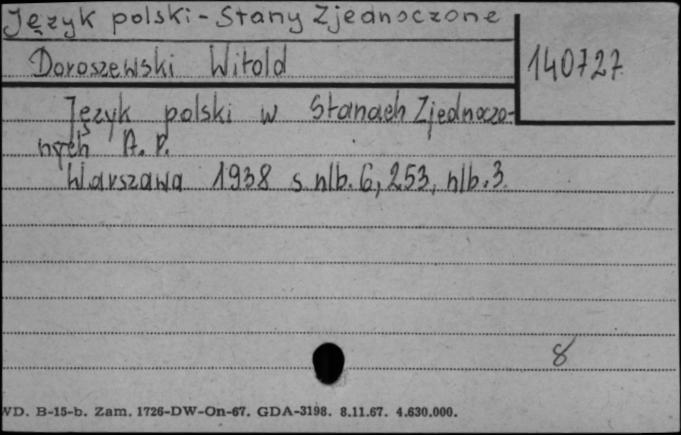 Język polski - Stany Zjednoczone
Doroszewski Witold
140727
Język polski w Stanach Zjednoczo-
nych A. P.
Warszawa 1938 s. nlb. 6, 253, nlb. 3.
8
WD. B-15-b. Zam. 1726-DW-On-67. GDA-3198. 8.11.67. 4.630.000.